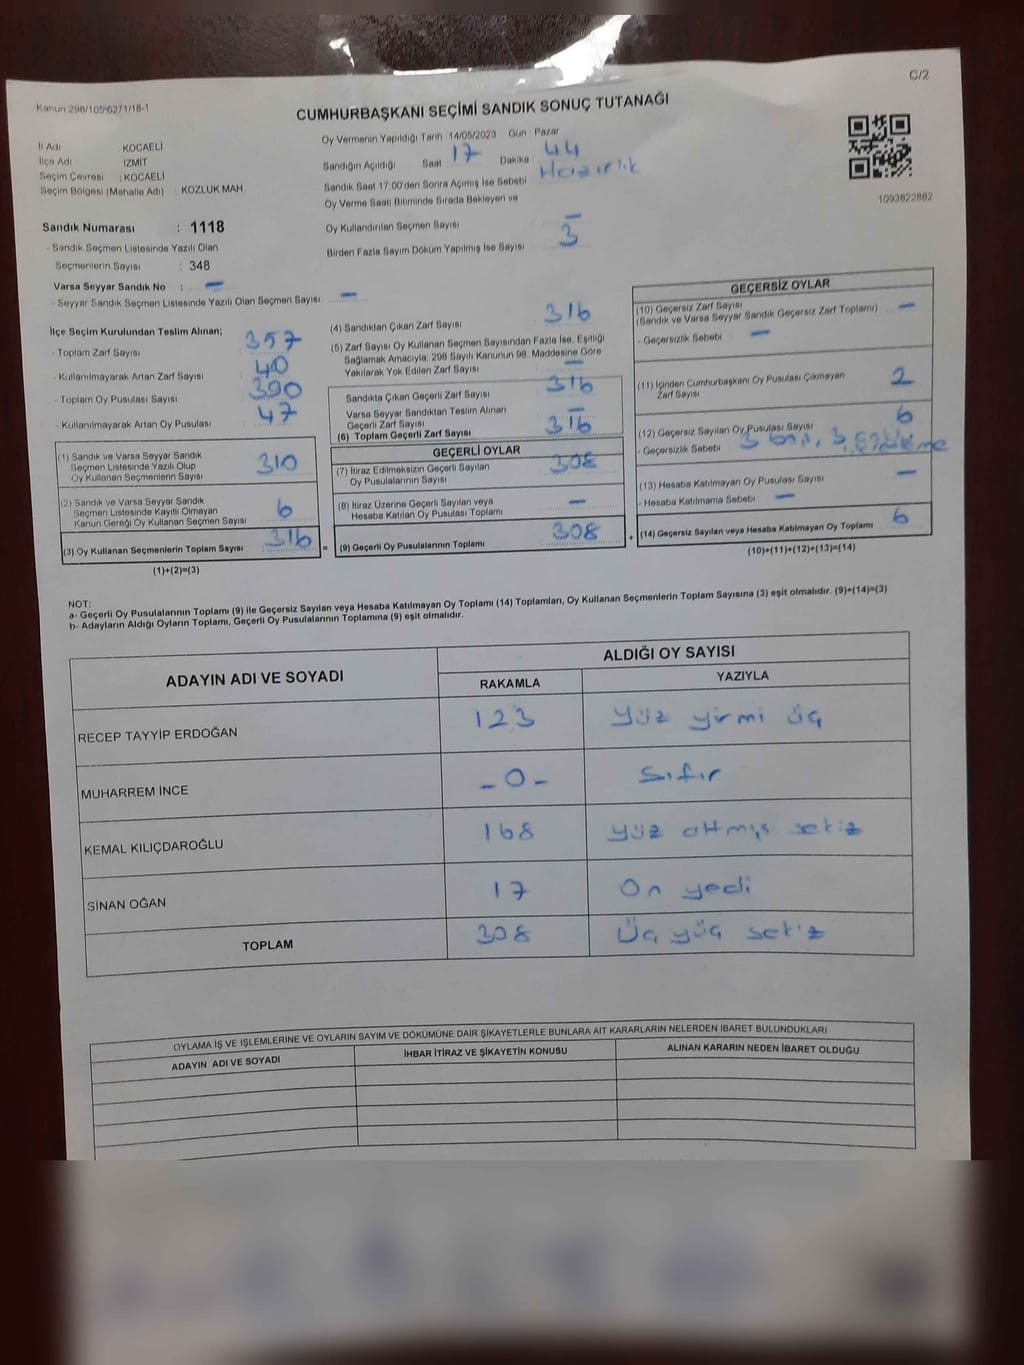 C/2
Kanun 298/105-6271/18-1
CUMHURBAŞKANI SEÇİMİ SANDIK SONUÇ TUTANAĞI
İl Adı KOCAELİ
İlçe Adı İZMİT
Seçim Çevresi : KOCAELİ
Seçim Bölgesi (Mahalle Adı) : KOZLUK MAH.
Oy Vermenin Yapıldığı Tarih : 14/05/2023 Gün : Pazar
Sandığın Açıldığı Saat 17 Dakika 44
Sandık Saat 17:00'den Sonra Açımış İse Sebebi Hazırlık
Oy Verme Saati Bitiminde Sırada Bekleyen ve
Oy Kullandırılan Seçmen Sayısı –
Birden Fazla Sayım Döküm Yapılmış İse Sayısı 3
1093622862
Sandık Numarası : 1118
- Sandık Seçmen Listesinde Yazılı Olan
Seçmenlerin Sayısı : 348
Varsa Seyyar Sandık No : –
- Seyyar Sandık Seçmen Listesinde Yazılı Olan Seçmen Sayısı: –
İlçe Seçim Kurulundan Teslim Alınan;
- Toplam Zarf Sayısı 357
- Kullanılmayarak Artan Zarf Sayısı 40
- Toplam Oy Pusulası Sayısı 390
- Kullanılmayarak Artan Oy Pusulası 47
(1) Sandık ve Varsa Seyyar Sandık
Seçmen Listesinde Yazılı Olup
Oy Kullanan Seçmenlerin Sayısı 310
(2) Sandık ve Varsa Seyyar Sandık
Seçmen Listesinde Kayıtlı Olmayan
Kanun Gereği Oy Kullanan Seçmen Sayısı 6
(3) Oy Kullanan Seçmenlerin Toplam Sayısı 316 =
(1)+(2)=(3)
(4) Sandıktan Çıkan Zarf Sayısı 316
(5) Zarf Sayısı Oy Kullanan Seçmen Sayısından Fazla İse, Eşitliği
Sağlamak Amacıyla, 298 Sayılı Kanunun 98. Maddesine Göre
Yakılarak Yok Edilen Zarf Sayısı –
Sandıkta Çıkan Geçerli Zarf Sayısı 316
Varsa Seyyar Sandıktan Teslim Alınan
Geçerli Zarf Sayısı –
(6) Toplam Geçerli Zarf Sayısı 316
GEÇERLİ OYLAR
(7) İtiraz Edilmeksizin Geçerli Sayılan
Oy Pusulalarının Sayısı 308
(8) İtiraz Üzerine Geçerli Sayılan veya
Hesaba Katılan Oy Pusulası Toplamı –
(9) Geçerli Oy Pusulalarının Toplamı 308 +
GEÇERSİZ OYLAR
(10) Geçersiz Zarf Sayısı
(Sandık ve Varsa Seyyar Sandık Geçersiz Zarf Toplamı) –
- Geçersizlik Sebebi –
(11) İçinden Cumhurbaşkanı Oy Pusulası Çıkmayan
Zarf Sayısı 2
(12) Geçersiz Sayılan Oy Pusulası Sayısı 6
- Geçersizlik Sebebi 3
(13) Hesaba Katılmayan Oy Pusulası Sayısı –
- Hesaba Katılmama Sebebi –
(14) Geçersiz Sayılan veya Hesaba Katılmayan Oy Toplamı 6
(10)+(11)+(12)+(13)=(14)
NOT:
a- Geçerli Oy Pusulalarının Toplamı (9) ile Geçersiz Sayılan veya Hesaba Katılmayan Oy Toplamı (14) Toplamları, Oy Kullanan Seçmenlerin Toplam Sayısına (3) eşit olmalıdır. (9)+(14)=(3)
b- Adayların Aldığı Oyların Toplamı, Geçerli Oy Pusulalarının Toplamına (9) eşit olmalıdır.
ADAYIN ADI VE SOYADI ALDIĞI OY SAYISI
RAKAMLA YAZIYLA
RECEP TAYYİP ERDOĞAN 123 Yüz yirmi üç
MUHARREM İNCE -0- Sıfır
KEMAL KILIÇDAROĞLU 168 Yüz altmış sekiz
SİNAN OĞAN 17 On yedi
TOPLAM 308 Üç yüz sekiz
OYLAMA İŞ VE İŞLEMLERİNE VE OYLARIN SAYIM VE DÖKÜMÜNE DAİR ŞİKAYETLERLE BUNLARA AİT KARARLARIN NELERDEN İBARET BULUNDUKLARI
ADAYIN ADI VE SOYADI İHBAR İTİRAZ VE ŞİKAYETİN KONUSU ALINAN KARARIN NEDEN İBARET OLDUĞU